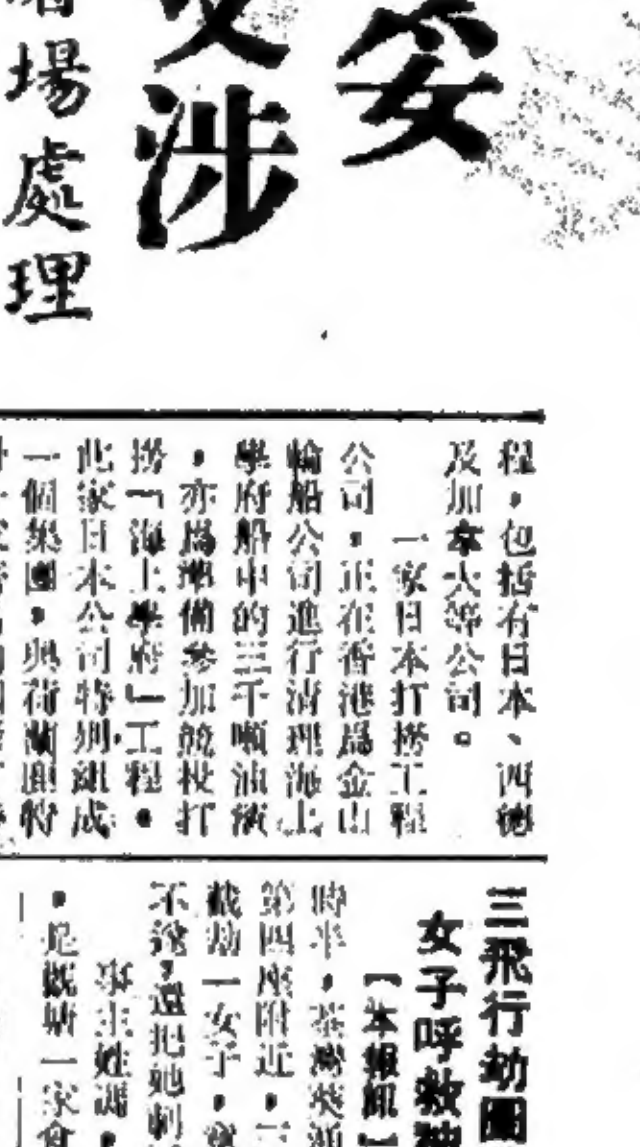 妥
涉
場處理
程，包括有日本、西德
及加拿大等公司。
一家日本打撈工程
公司，正在香港爲金山
輪船公司進行清理海上
學府船中的三千噸油漬
，亦爲準備參加競投打
撈「海上學府」工程。
此家日本公司特別組成
一個集團，與荷蘭
三飛行劫
女子呼救
【本報訊】
時半，荃灣葵
第四座附近，三
截劫一女子，
不說，還把她刺
事主姓馮，
，是觀塘一家